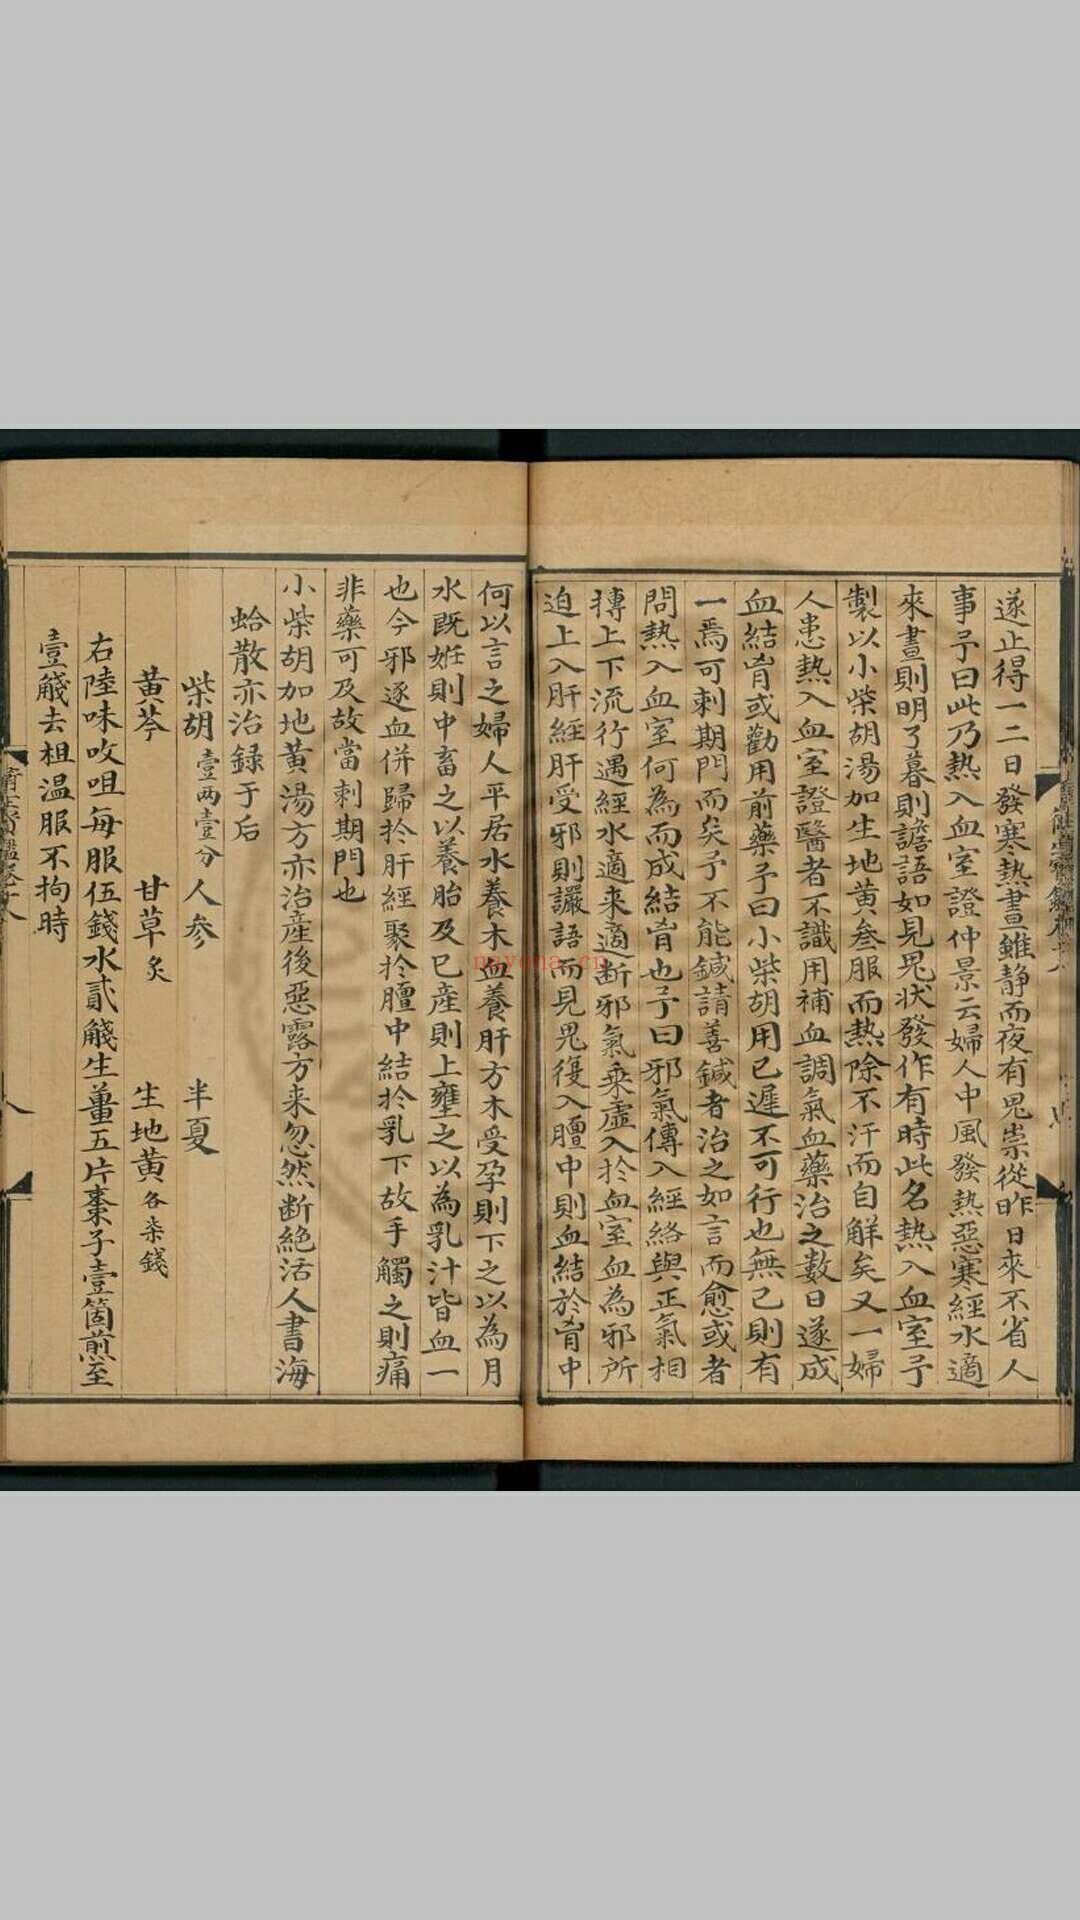 遂止得一二日發寒熱晝雖静而夜有鬼祟從昨日來不省人
事予曰此乃熱入血室證仲景云婦人中風發熱惡寒經水適
來晝則明了暮則譫語如見鬼狀發作有時此名熱入血室予
製以小柴胡湯加生地黄叁服而熱除不汗而自解矣又一婦
人患熱入血室證醫者不識用補血調氣血藥治之數日遂成
血結胷或勸用前藥予曰小柴胡用已遲不可行也無已則有
一焉可刺期門而矣予不能鍼請善鍼者治之如言而愈或者
問熱入血室何為而成結胷也予曰邪氣傳入經絡與正氣相
摶上下流行遇經水適来適断邪氣乗虚入於血室血為邪所
迫上入肝經肝受邪則讝語而見鬼復入膻中則血結於胷中
何以言之婦人平居水養木血養肝方木受孕則下之以為月
水既姙則中畜之以養胎及已産則上壅之以為乳汁皆血一
也今邪逐血併歸於肝經聚於膻中結於乳下故手觸之則痛
非藥可及故當刺期門也
小柴胡加地黄湯方亦治産後惡露方来忽然断絶活人書海
蛤散亦治録于后
柴胡壹两壹分 人参 半夏
黄芩 甘草炙 生地黄各柒錢
右陸味㕮咀每服伍錢水貳醆生薑五片棗子壹箇煎至
壹醆去柤温服不拘時
nayona.cn